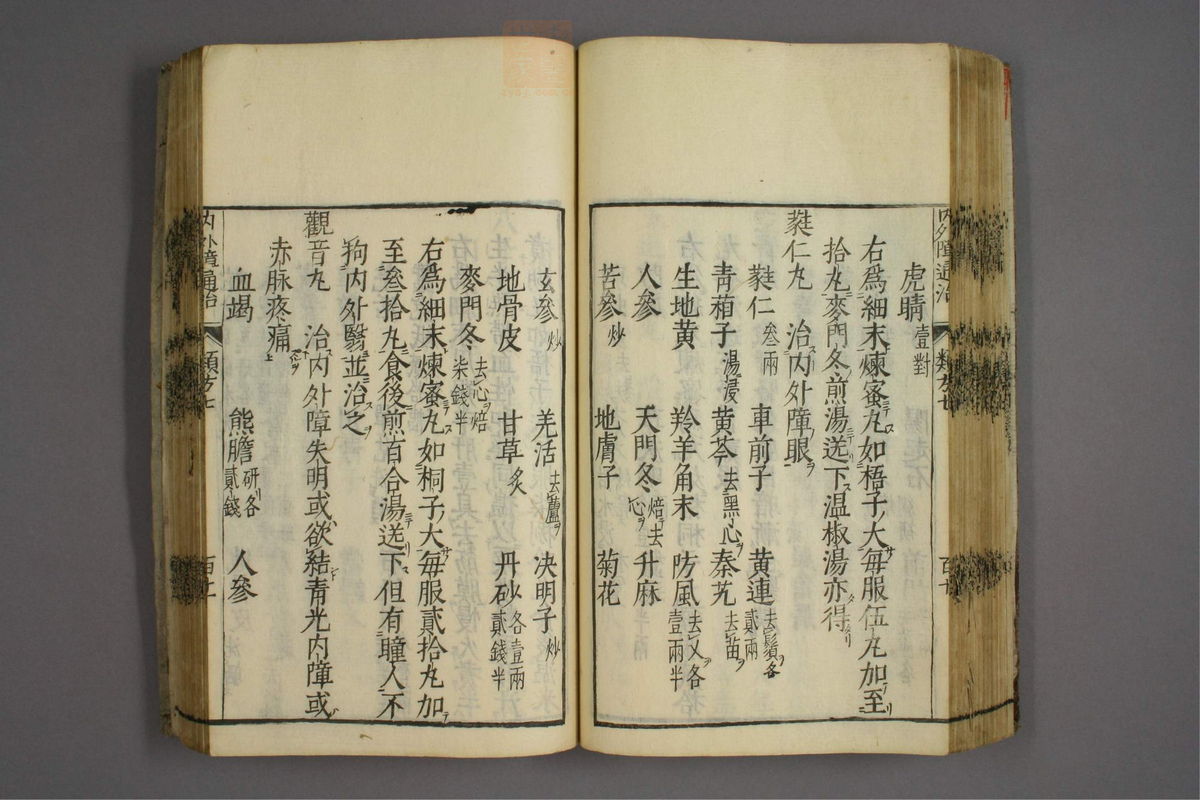 內外障通治 類方七 百十
虎睛壹對
右爲細末煉蜜丸如梧子大每服伍丸加至
拾丸麥門冬煎湯送下温椒湯亦得
蕤仁丸 治內外障眼
蕤仁叁兩 車前子 黄連去鬚各貳兩
青葙子湯浸 黄芩去黑心 秦艽去苗
生地黄 羚羊角末 防風去叉各壹兩半
人參 天門冬焙去心 升麻
苦參炒 地膚子 菊花
玄參炒 羌活去蘆 决明子炒
地骨皮 甘草炙 丹砂各壹兩貳錢半
麥門冬去心焙柒錢半
右爲細末煉蜜丸如桐子大每服貳拾丸加
至叁拾丸食後煎百合湯送下但有瞳人不
拘內外翳並治之
觀音丸 治內外障失明或欲結青光內障或
赤脉疼痛
血竭 熊膽研各貳錢 人參
內外障通治 類方七